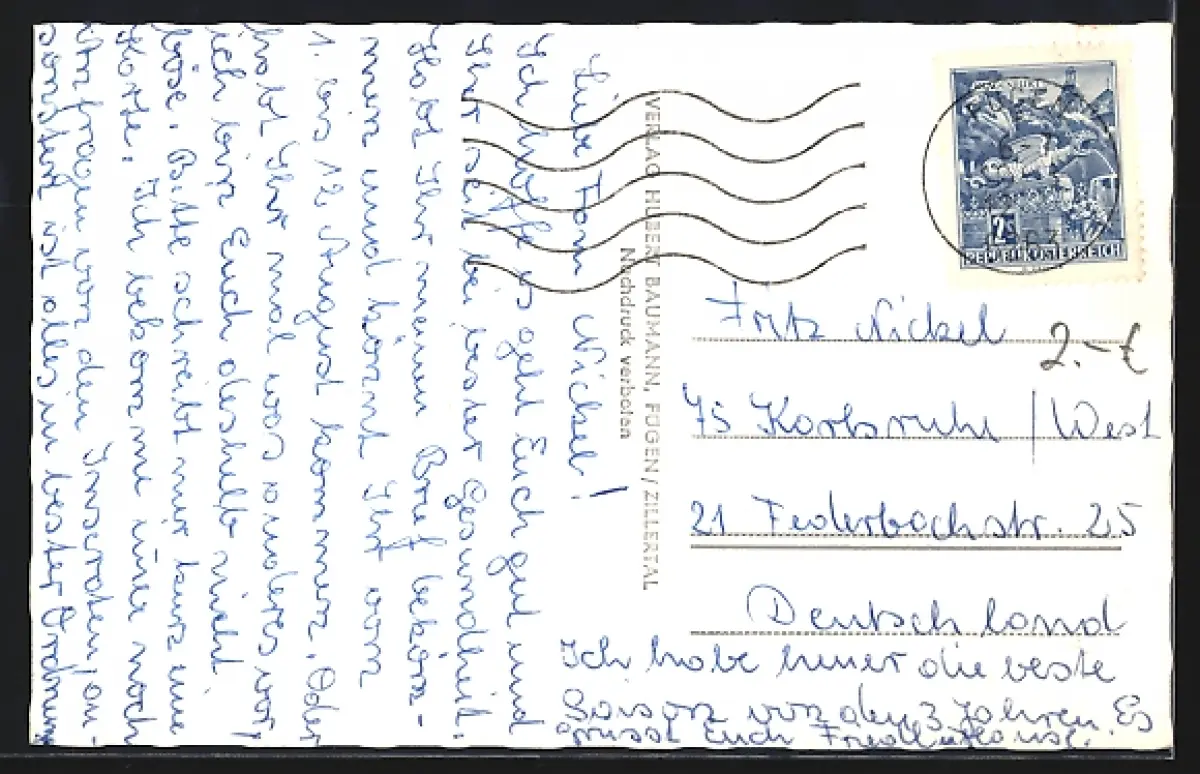 Liebe Fam Nickel!
Ich hoffe es geht Euch gut und
Ihr seit bei bester Gesundheit.
Habt Ihr meinen Brief bekom-
men und könnt Ihr vom
1. bis 12 August kommen. Oder
habt Ihr mal was anderes vor
ich bin Euch deshalb nicht
böse. Bitte schreibt mir kurz eine
Karte. Ich bekomme immer noch
Anfragen von den Inseraten, an-
sonsten ist alles in bester Ordnung
VERLAG HUBERT BAUMANN, FÜGEN / ZILLERTAL
Nachdruck verboten
2
REPUBLIK ÖSTERREICH
Fritz Nickel
2.-€
75 Karlsruhe / West
21 Federbachstr. 25
Deutschland
Ich habe heuer die beste
Saison von den 3 Jahren. Es
grüsst Euch